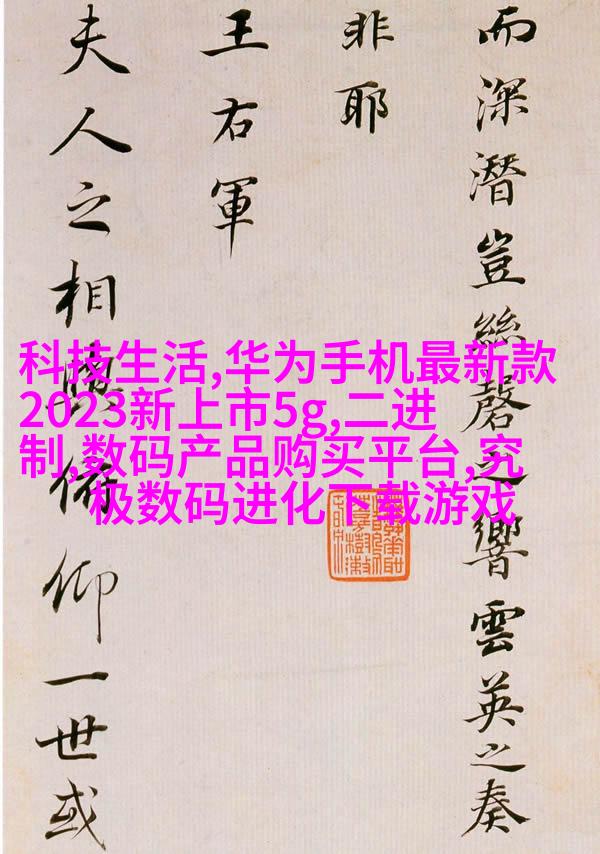 而深潛豈絲磬之響雲英之奏
非耶
王右軍
夫人之相與俯仰一世或
科技生活,华为手机最新款
2023新上市5g,二进
制,数码产品购买平台,究
极数码进化下载游戏